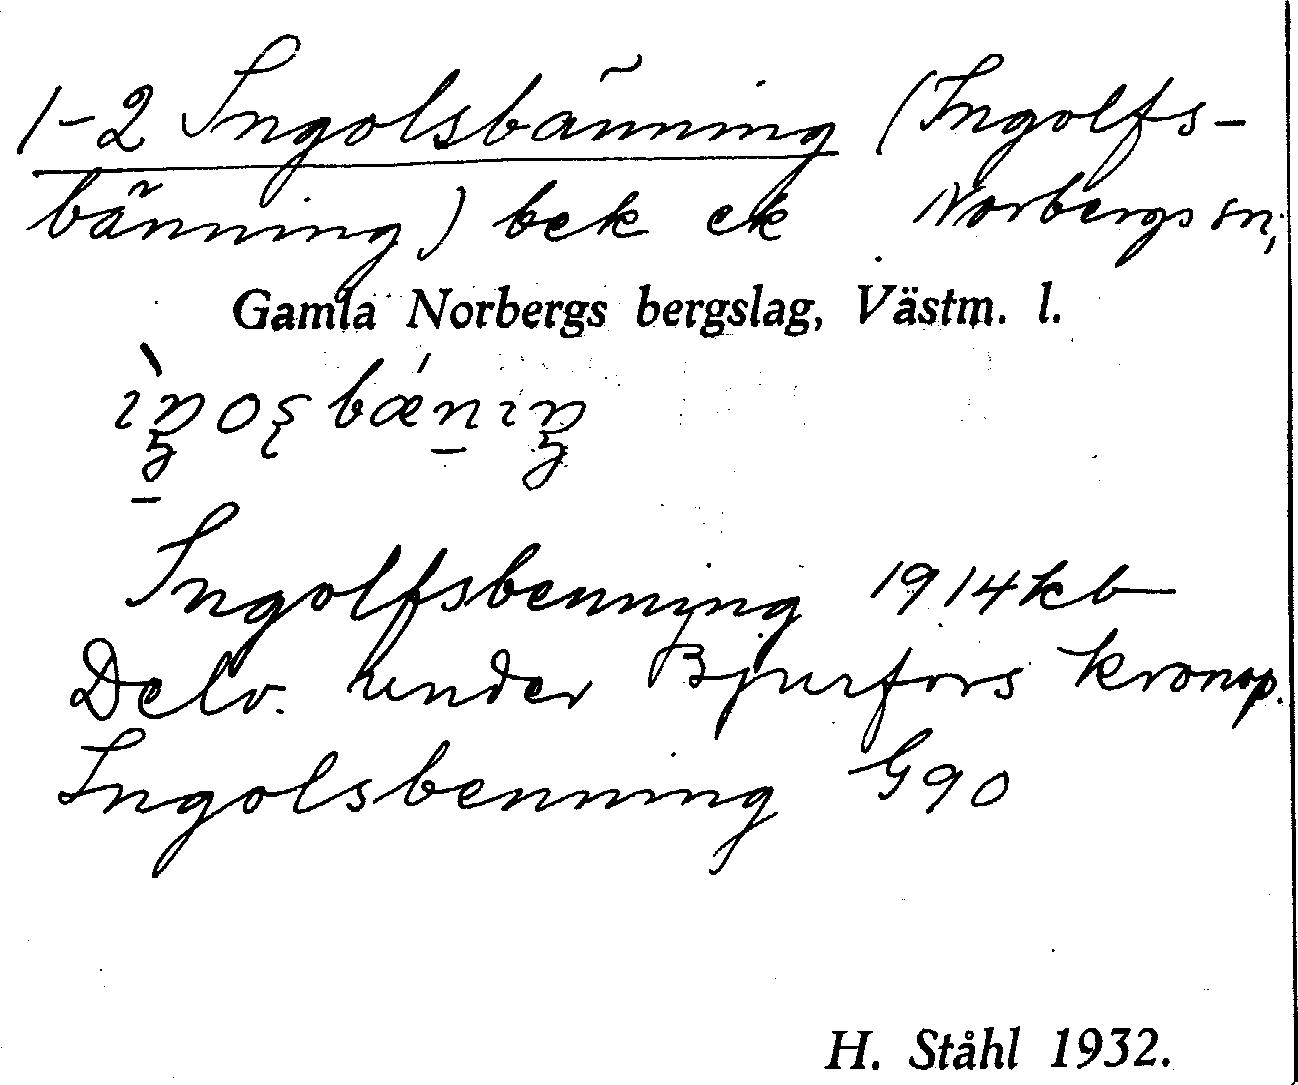 1-2 Ingolsbänning (Ingolfs-
bänning) bek ek Norbergs sn,
Gamla Norbergs bergslag, Västm. l.
Ingolfsbenning 1914 kb
Delv. under Bjurfors kronop.
Ingolsbenning G90
H. Ståhl 1932.